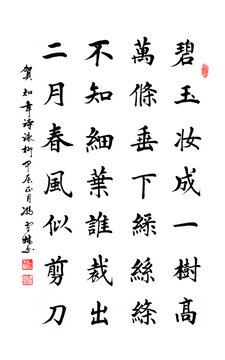 碧玉妆成一樹高
萬條垂下綠絲絛
不知細葉誰裁出
二月春風似剪刀
賀知章詩詠柳甲辰正月馮